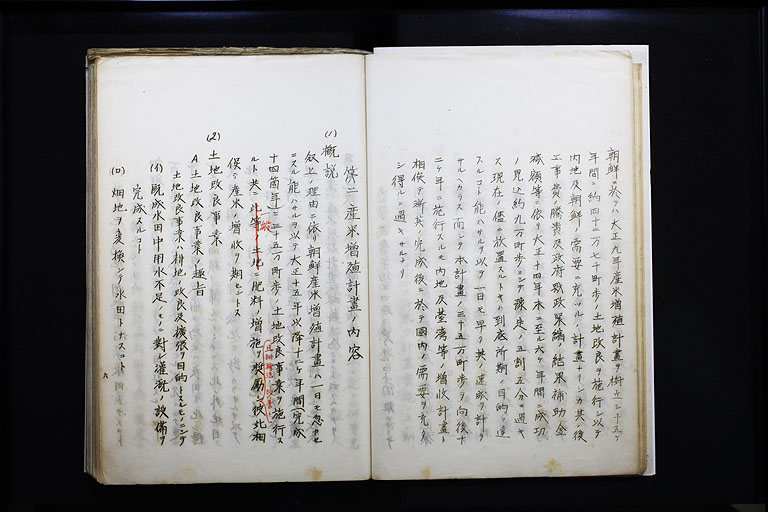 朝鮮ニ於テハ大正九年産米増殖計畫ヲ樹立シ十五ケ
年間ニ約四十二万七千町歩ノ土地改良ヲ施行シ以テ
内地及朝鮮ノ需要ニ充ツルノ計畫ナリシカ其ノ後
工事費ノ騰貴及政府財政緊縮ノ結果補助金
減額等ニ依リ大正十四年末ニ至ル六ケ年間ニ成功
ノ見込約九万町歩ニシテ豫定ノ五割五分ニ過キ
ス現在ノ儘ニ放置スルトキハ到底所期ノ目的ヲ達
スルコト能ハサルヲ以テ一日モ早ク其ノ達成ヲ計ラ
サルヘカラス而シテ本計畫ノ三十五万町歩ヲ向後十
二ケ年ニ施行スルモ内地及臺湾等ノ増收計畫ト
相俟テ漸ク其ノ完成後ニ於テ國内ノ需要ヲ充タ
シ得ルニ過キサルナリ
第二 産米増殖計畫ノ内容
(1) 概説
叙上ノ理由ニ依リ朝鮮産米増殖計畫ハ一日モ忽カセ
ニスル能ハサルヲ以テ大正十五年以降十二ケ年間(完成
十四箇年)ニ三十五万町歩ノ土地改良事業ヲ施行ス
ルト共ニ此等ノ土地ニ肥料ノ増施ヲ奨勵シ彼此相
一般
俟テ産米ノ増收ヲ期セントス
(2) 土地改良事業
A 土地改良事業ノ趣旨
土地改良事業ハ耕地ノ改良及擴張ヲ目的トスルモノニシテ
(イ) 既成水田中用水不足ノモノニ對シ灌漑ノ設備ヲ
完成スルコト
(ロ) 畑地ヲ変換シテ水田トナスコト
九